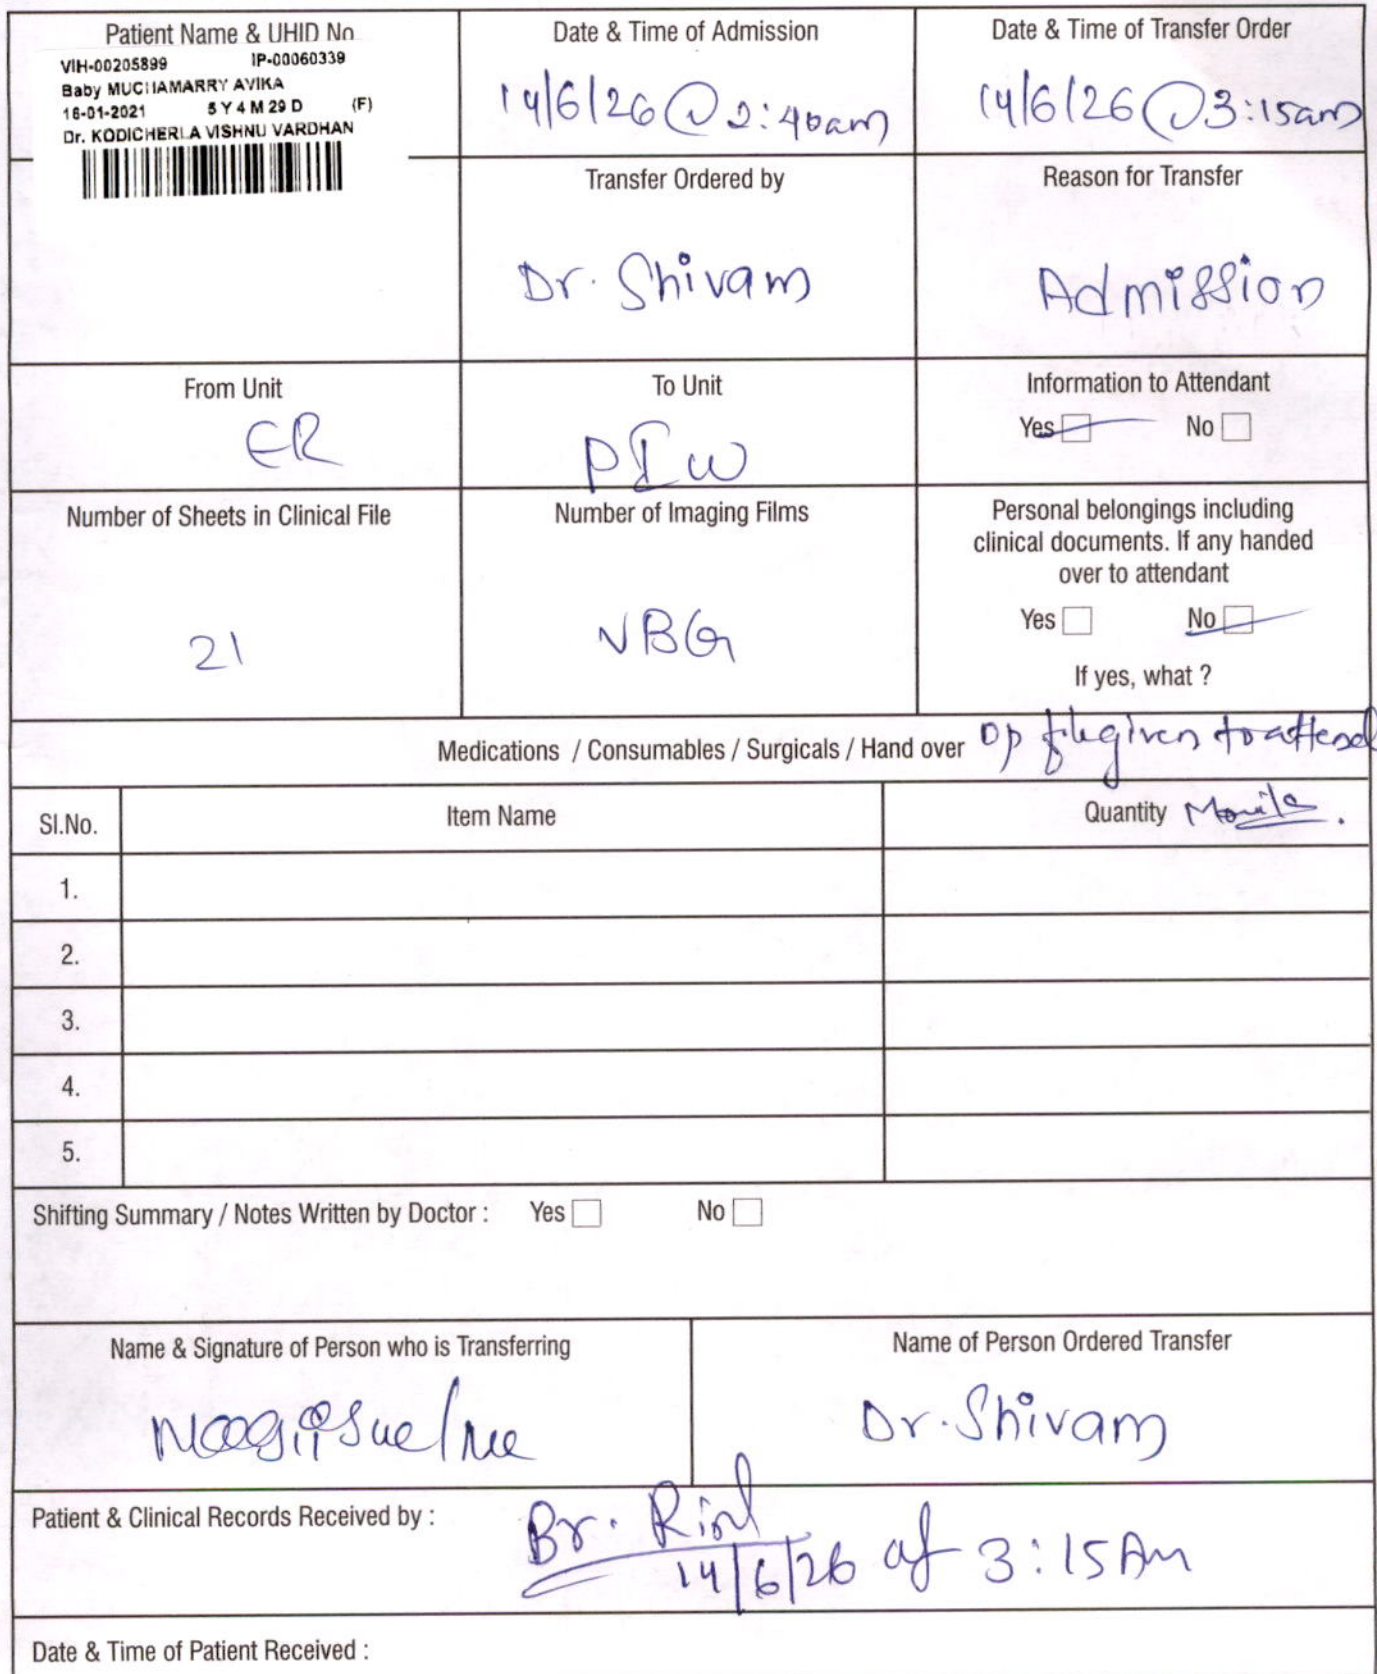 Patient Name & UHID No
VIH-00205899 IP-00060339
Baby MUCHAMARRY AVIKA
16-01-2021 5 Y 4 M 29 D (F)
Dr. KODICHERLA VISHNU VARDHAN
Date & Time of Admission
14/6/26 @ 2:40am
Date & Time of Transfer Order
14/6/26 @ 3:15am
Transfer Ordered by
Dr. Shivam
Reason for Transfer
Admission
From Unit
ER
To Unit
PICU
Information to Attendant
Yes No
Number of Sheets in Clinical File
21
Number of Imaging Films
VBG
Personal belongings including
clinical documents. If any handed
over to attendant
Yes No
If yes, what ?
Medications / Consumables / Surgicals / Hand over
op file given to attend
Sl.No. Item Name Quantity
1.
2.
3.
4.
5.
Shifting Summary / Notes Written by Doctor : Yes No
Name & Signature of Person who is Transferring
Name of Person Ordered Transfer
Dr. Shivam
Patient & Clinical Records Received by : Br.
14/6/26 at 3:15Am
Date & Time of Patient Received :